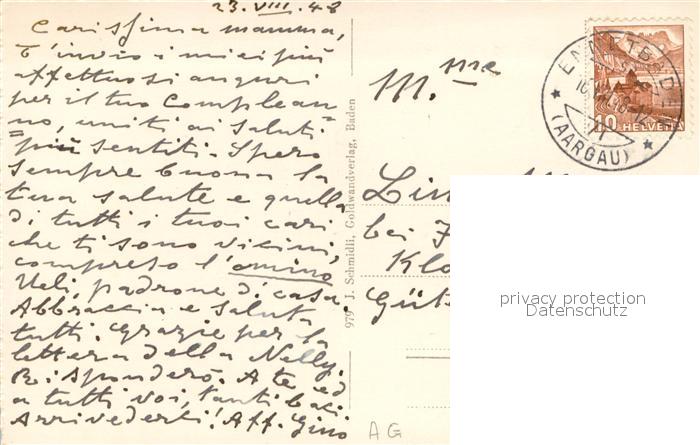 23.VIII.48
Carissima mamma,
t'invio i miei più
affettuosi auguri
per il tuo Complean=
no, uniti ai saluti
più sentiti. Spero
sempre buona la
tua salute e quella
di tutti i tuoi cari
che ti sono vicini,
compreso l'omino
Ueli, padrone di casa.
Abbraccia e saluta
tutti. Grazie per la
lettera della Nelly.
Risponderò. A te ed
a tutti voi, tanti baci
Arrivederti! Aff. Gino
979 J. Schmidli, Goldwandverlag, Baden
M.me
Lin
bei
Klo
Güt
AG
ENNETBADEN
(AARGAU)
10 HELVETIA
privacy protection
Datenschutz